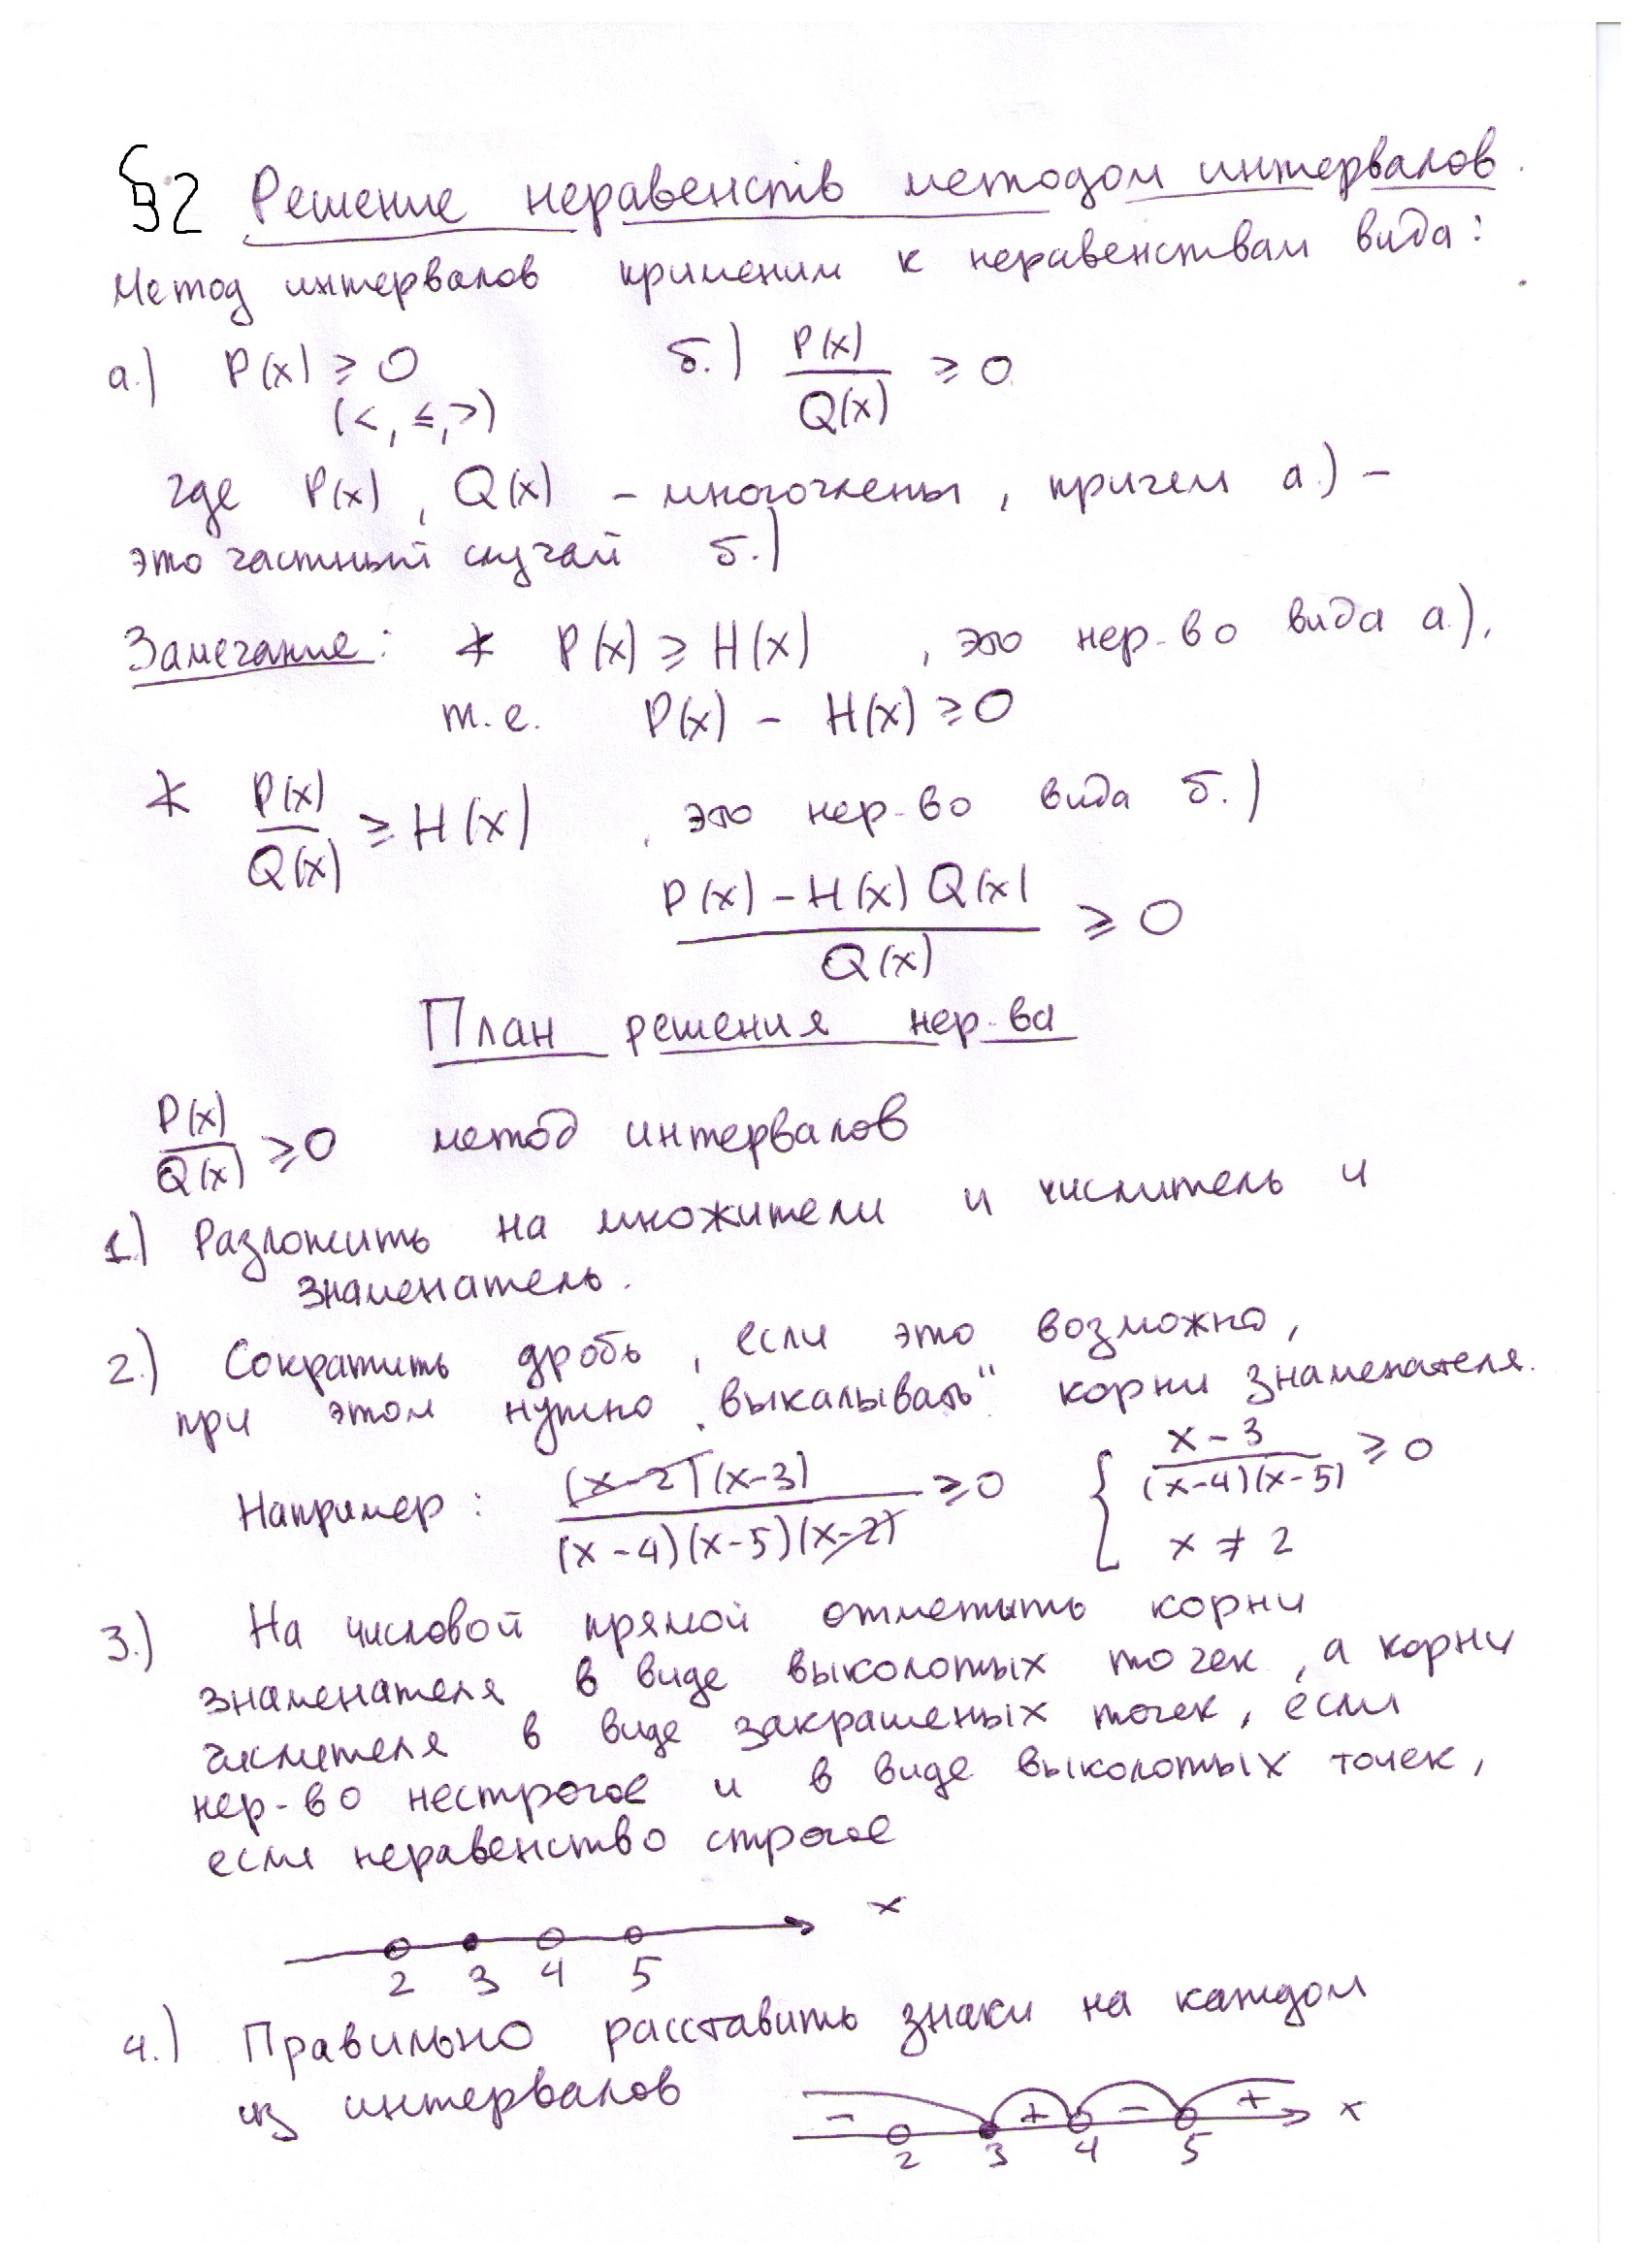 §2 Решение неравенств методом интервалов.
Метод интервалов применим к неравенствам вида:
а.) P(x) ≥ 0 б.) P(x)/Q(x) ≥ 0
(<, ≤, >)
где P(x), Q(x) – многочлены, причем а.) –
это частный случай б.)
Замечание: * P(x) ≥ H(x), это нер-во вида а.),
т.е. P(x) – H(x) ≥ 0
* P(x)/Q(x) ≥ H(x), это нер-во вида б.)
(P(x) – H(x) Q(x))/Q(x) ≥ 0
План решения нер-ва
P(x)/Q(x) ≥ 0 метод интервалов
1.) Разложить на множители и числитель и
знаменатель.
2.) Сократить дробь, если это возможно,
при этом нужно „выкалывать“ корни знаменателя.
Например: (x-2)(x-3)/((x-4)(x-5)(x-2)) ≥ 0 { (x-3)/((x-4)(x-5)) ≥ 0
x ≠ 2
3.) На числовой прямой отметить корни
знаменателя в виде выколотых точек, а корни
числителя в виде закрашеных точек, если
нер-во нестрогое и в виде выколотых точек,
если неравенство строгое
x
2 3 4 5
4.) Правильно расставить знаки на каждом
из интервалов
– + – + x
2 3 4 5